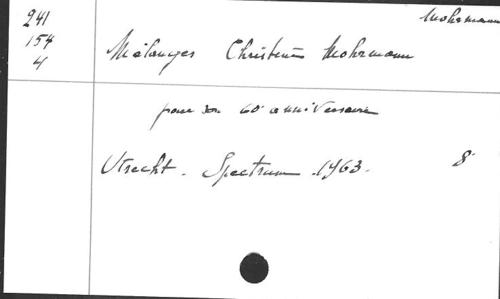 241
154
4
Mohrmann
Mélanges Christine Mohrmann
pour son 60e anniversaire
Utrecht. Spectrum. 1963. 8°